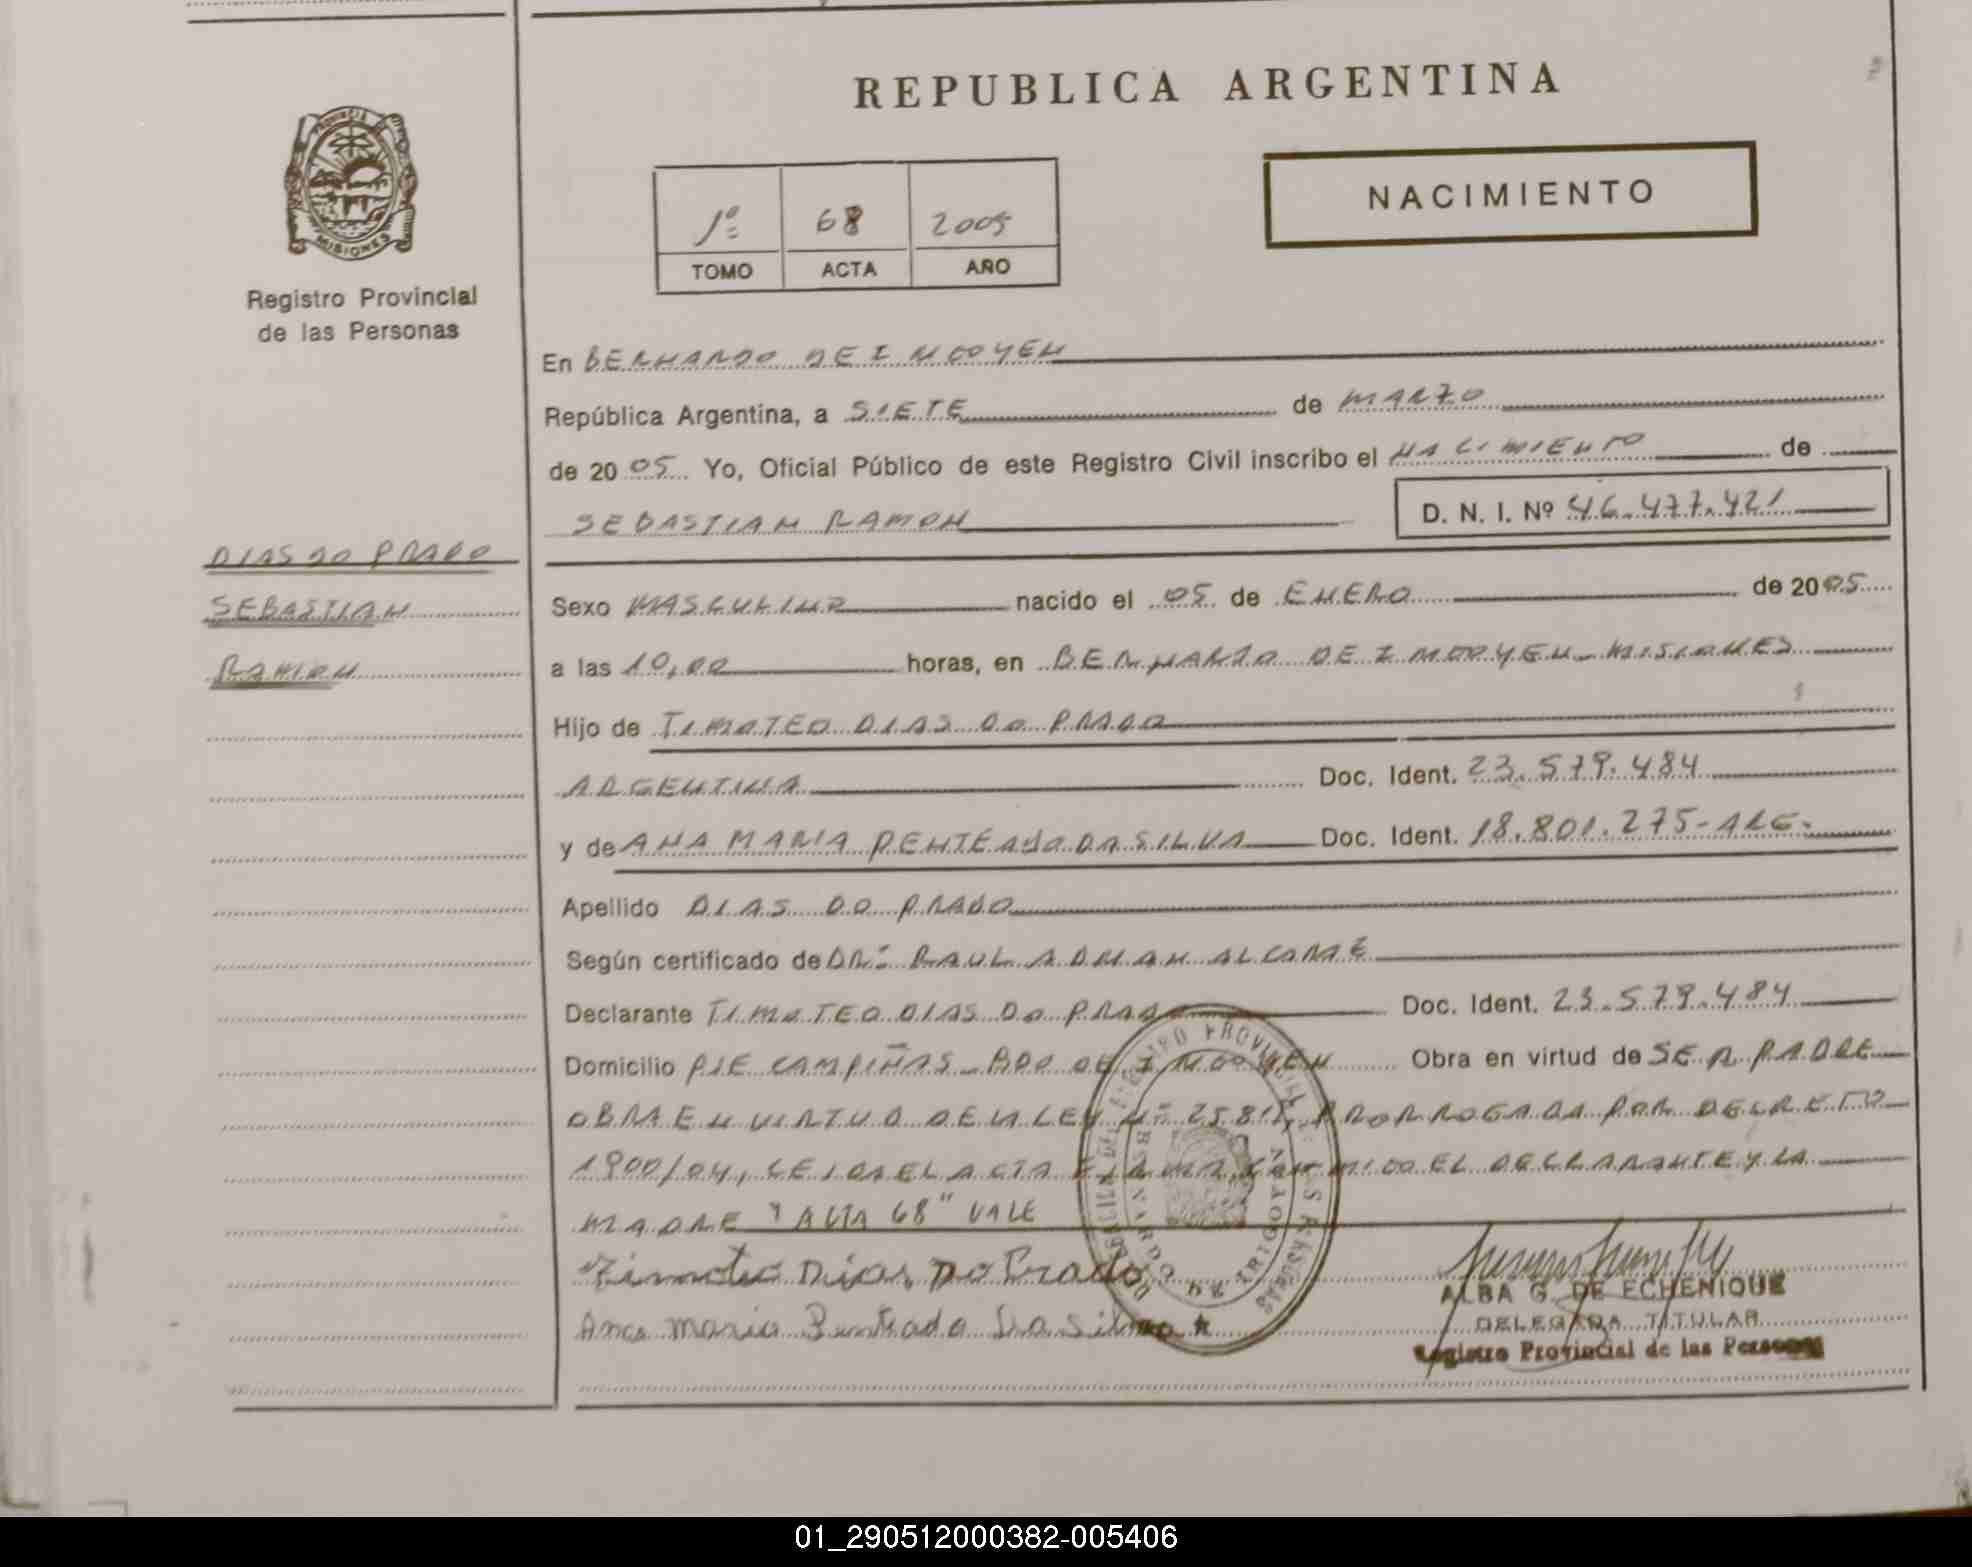 REPUBLICA ARGENTINA
PROVINCIA DE
MISIONES
Registro Provincial
de las Personas
1º 68 2005
TOMO ACTA AÑO
NACIMIENTO
En BERNARDO DE IRIGOYEN
República Argentina, a SIETE de MARZO
de 2005 Yo, Oficial Público de este Registro Civil inscribo el NACIMIENTO de
SEBASTIAN RAMON D. N. I. Nº 46.477.421
DIAS DO PRADO
SEBASTIAN
RAMON
Sexo MASCULINO nacido el 05 de ENERO de 2005
a las 10,00 horas, en BERNARDO DE IRIGOYEN - MISIONES
Hijo de TIMOTEO DIAS DO PRADO
ARGENTINA Doc. Ident. 23.579.484
y de ANA MARIA PENTEADO DA SILVA Doc. Ident. 18.801.275-ARG.
Apellido DIAS DO PRADO
Según certificado de DR: RAUL ADRIAN ALCARAZ
Declarante TIMOTEO DIAS DO PRADO Doc. Ident. 23.579.484
Domicilio PJE CAMPIÑAS - BDO DE IRIGOYEN Obra en virtud de SER PADRE
OBRA EN VIRTUD DE LA LEY Nº 25.819 PRORROGADA POR DECRETO
1900/04, LEIDA EL ACTA FIRMA CONMIGO EL DECLARANTE Y LA
MADRE "ACTA 68" VALE
Timoteo Dias Do Prado
Ana Maria Penteado Da Silva
ALBA G. DE ECHENIQUE
DELEGADA TITULAR
Registro Provincial de las Personas
01_290512000382-005406